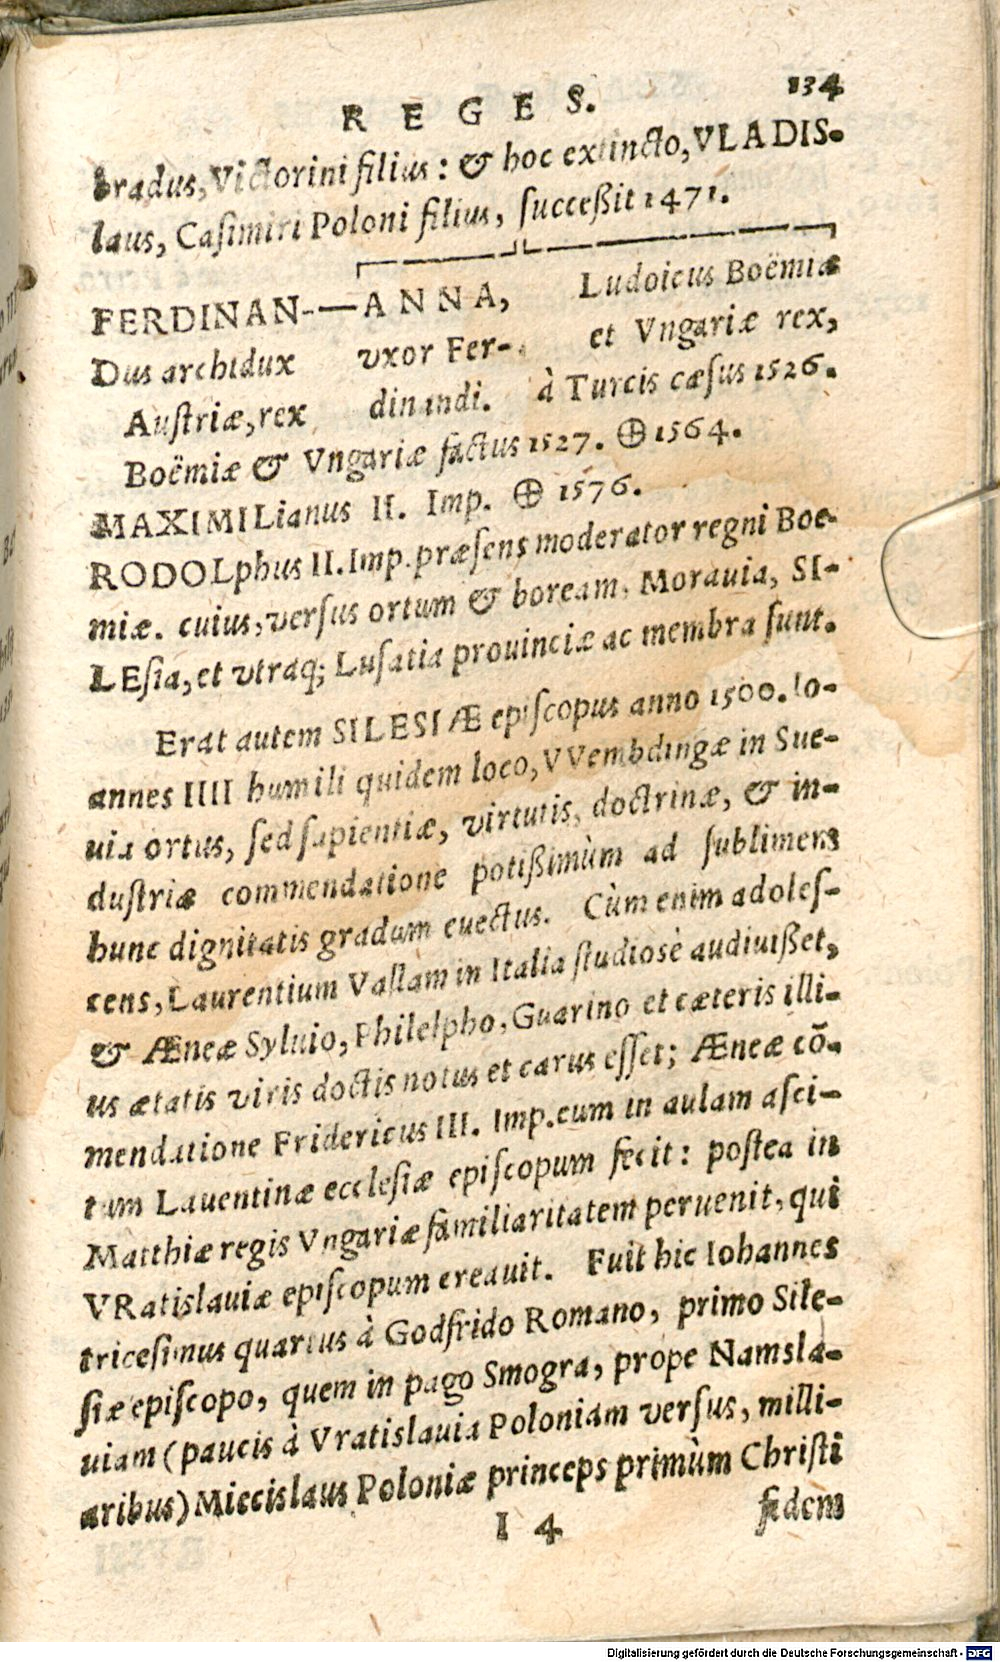 134
REGES.
bradus, Victorini filius: & hoc extincto, VLADIS-
laus, Casimiri Poloni filius, successit 1471.
FERDINAN-—ANNA, Ludoicus Boëmiæ
Dus archidux vxor Fer- et Vngariæ rex,
Austriæ, rex dinandi. à Turcis cæsus 1526.
Boëmiæ & Vngariæ factus 1527. ⊕ 1564.
MAXIMILianus II. Imp. ⊕ 1576.
RODOLphus II. Imp. præsens moderator regni Boe-
miæ. cuius, versus ortum & boream, Morauia, SI-
LEsia, et vtraq; Lusatia prouinciæ ac membra sunt.
Erat autem SILESIÆ episcopus anno 1500. Io-
annes IIII humili quidem loco, VVembdingæ in Sue-
uia ortus, sed sapientiæ, virtutis, doctrinæ, & in-
dustriæ commendatione potißimùm ad sublimem
hunc dignitatis gradum euectus. Cùm enim adoles-
cens, Laurentium Vallam in Italia studiosè audiuißet,
& Æneæ Syluio, Philelpho, Guarino et cæteris illi-
us ætatis viris doctis notus et carus esset; Æneæ cō-
mendatione Fridericus III. Imp. eum in aulam asci-
tum Lauentinæ ecclesiæ episcopum fecit: postea in
Matthiæ regis Vngariæ familiaritatem peruenit, qui
VRatislauiæ episcopum creauit. Fuit hic Iohannes
tricesimus quartus à Godfrido Romano, primo Sile-
siæ episcopo, quem in pago Smogra, prope Namsla-
uiam (paucis à Vratislauia Poloniam versus, milli-
aribus) Miecislaus Poloniæ princeps primùm Christi
I 4 fidem
Digitalisierung gefördert durch die Deutsche Forschungsgemeinschaft - DFG